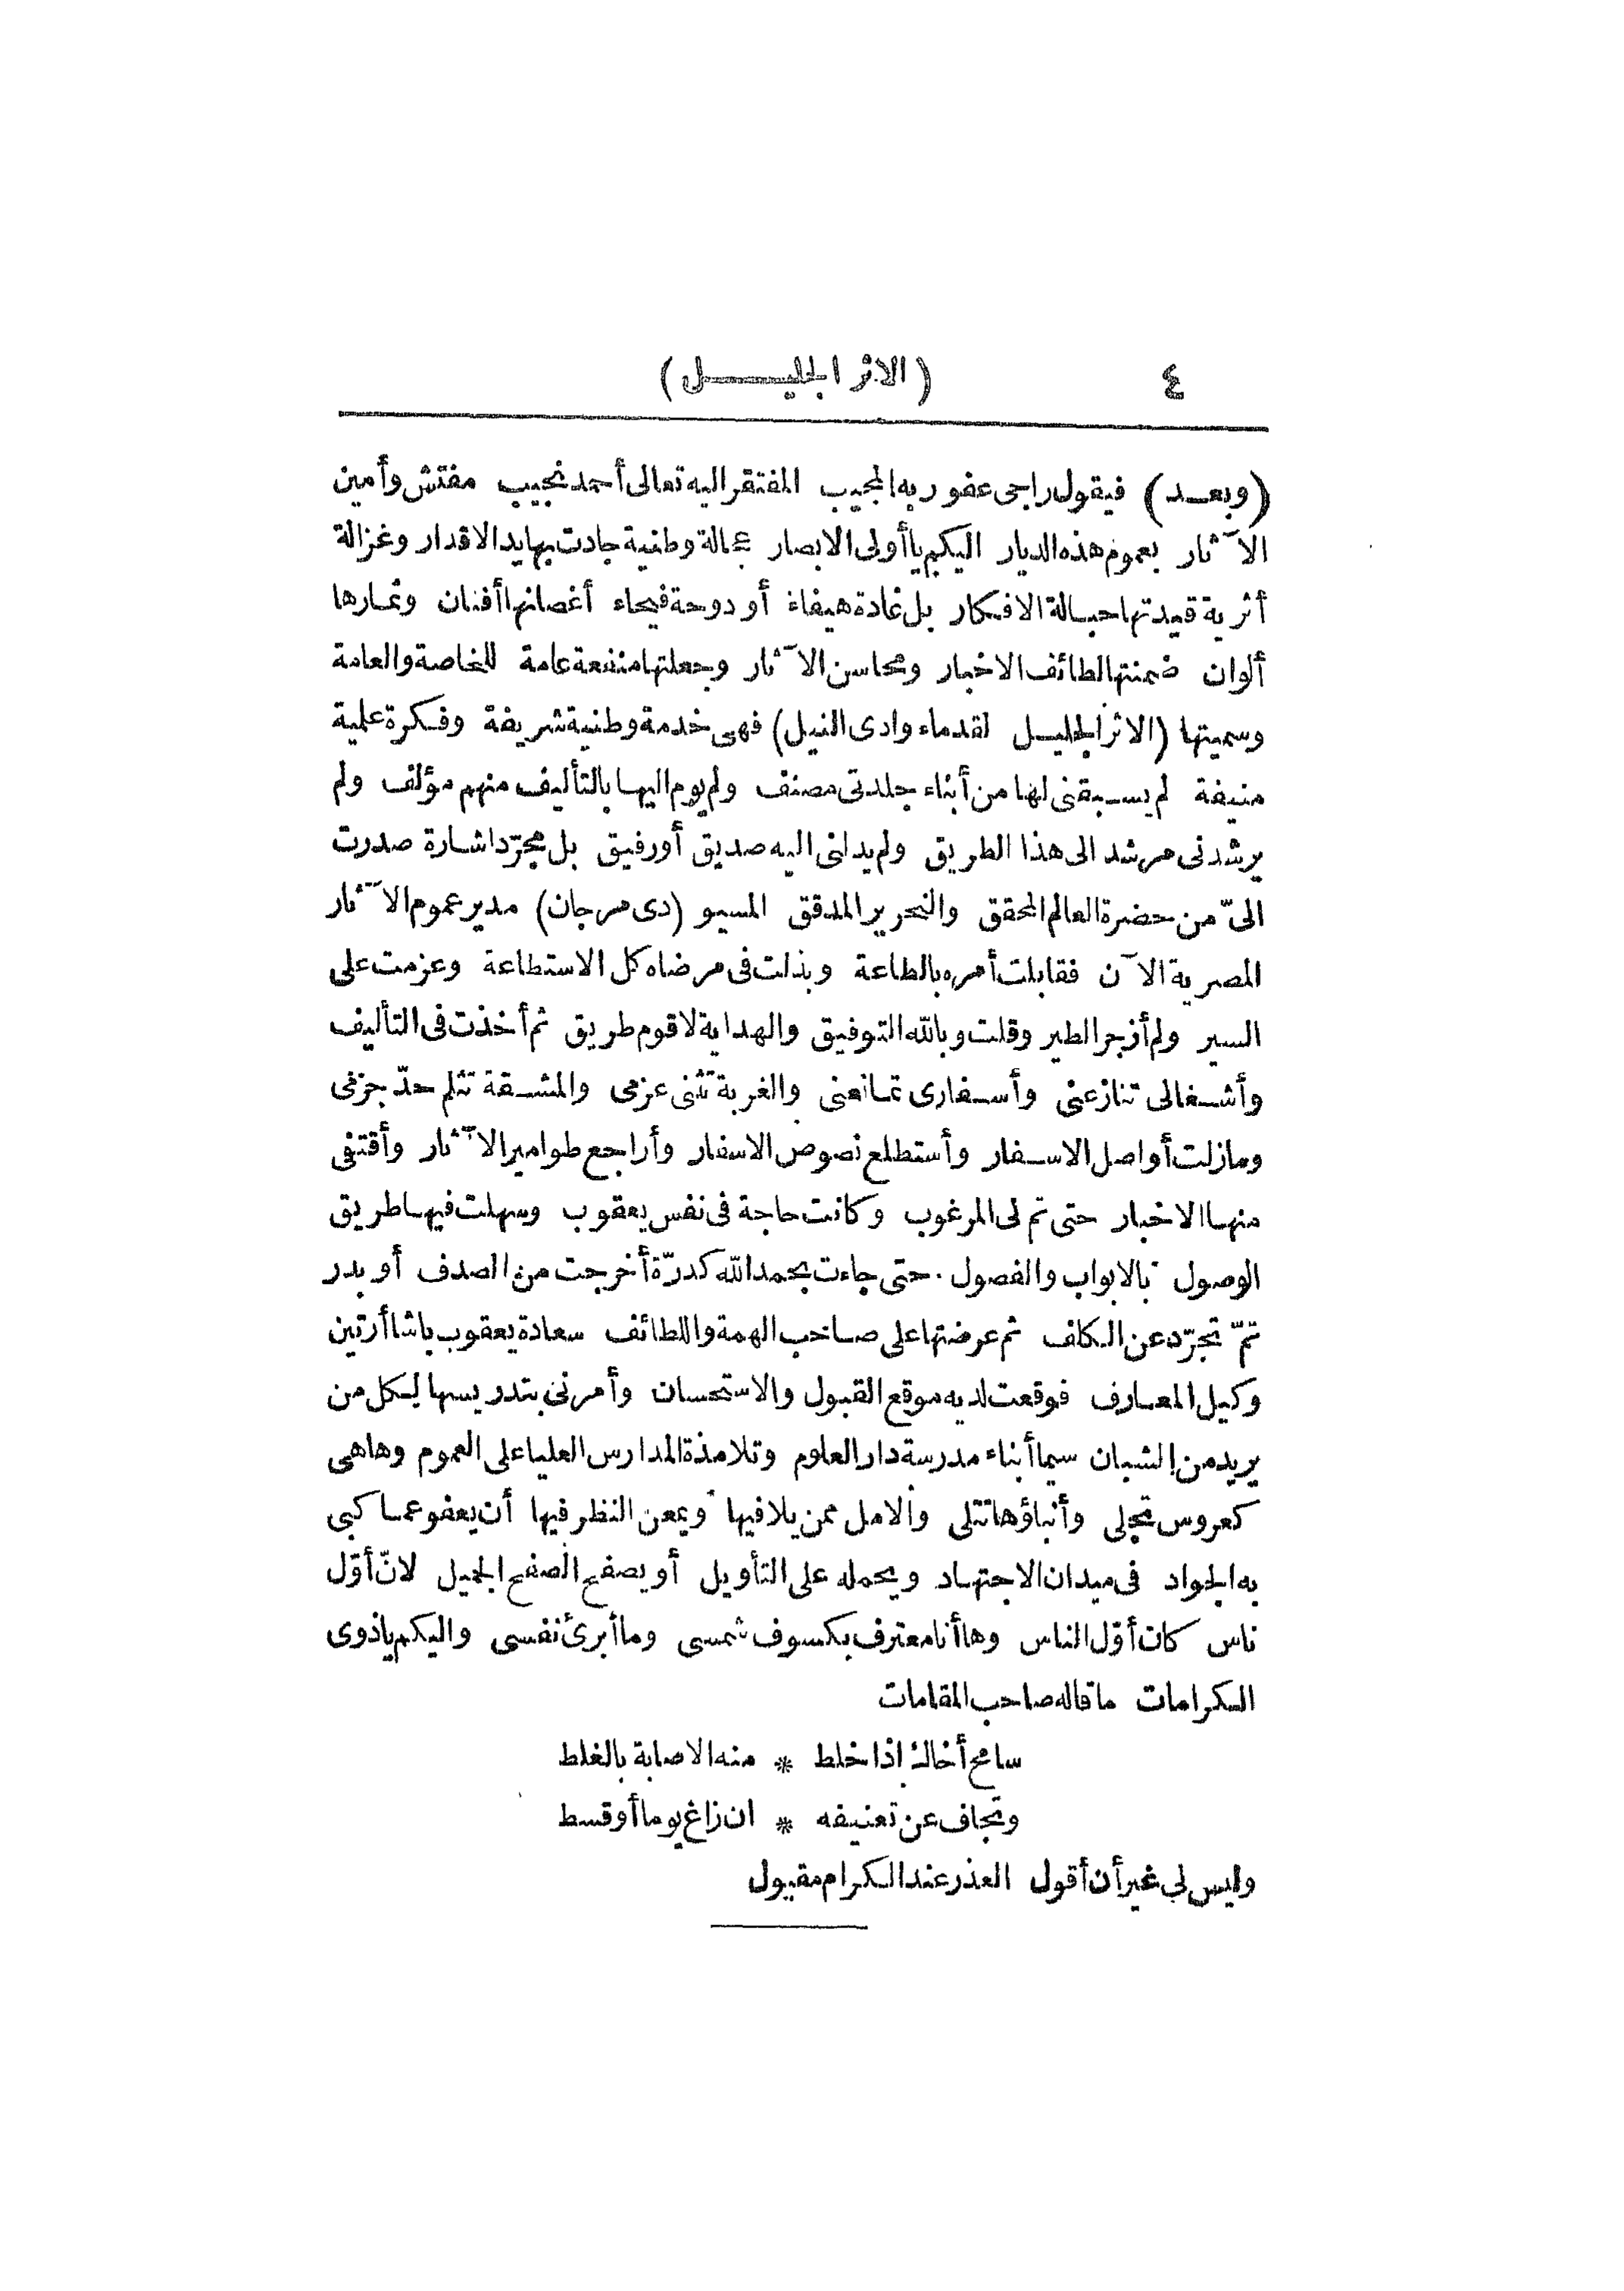 ٤ (الاثر الجليـــــل)
(وبعـــد) فيقول راجى عفو ربه المجيب المفتقر اليه تعالى أحمد نجيب مفتش وأمين
الآثار بعموم هذه الديار اليكم يا أولى الابصار عجالة وطنية جادت بها يد الاقدار وغزالة
أثرية قيدتها حبالة الافكار بل غادة هيفاء أو دوحة فيحاء أغصانها أفنان وثمارها
ألوان ضمنتها لطائف الاخبار ومحاسن الآثار وجعلتها منفعة عامة للخاصة والعامة
وسميتها (الاثر الجليل لقدماء وادى النيل) فهى خدمة وطنية شريفة وفكرة علمية
منيفة لم يسبقنى لها من أبناء جلدتى مصنف ولم يوم اليها بالتأليف منهم مؤلف ولم
يرشدنى مرشد الى هذا الطريق ولم يدلنى اليه صديق أو رفيق بل مجرّد اشارة صدرت
الىّ من حضرة العالم المحقق والنحرير المدقق المسيو (دى مرجان) مدير عموم الآثار
المصرية الآن فقابلت أمره بالطاعة وبذلت فى مرضاه كل الاستطاعة وعزمت على
السير ولم أزجر الطير وقلت وبالله التوفيق والهداية لاقوم طريق ثم أخذت فى التأليف
وأشغالى تنازعنى وأسفارى تمانعنى والغربة تثنى عزمى والمشقة تثلم حدّ جزمى
ومازلت أواصل الاسفار وأستطلع نصوص الاسفار وأراجع طوامير الآثار وأقتفى
منها الاخبار حتى تم لى المرغوب وكانت حاجة فى نفس يعقوب وسهلت فيها طريق
الوصول بالابواب والفصول حتى جاءت بحمد الله كدرّة أخرجت من الصدف أو بدر
تمّ تجرّد عن الكلف ثم عرضتها على صاحب الهمة واللطائف سعادة يعقوب باشا أرتين
وكيل المعارف فوقعت لديه موقع القبول والاستحسان وأمرنى بتدريسها لكل من
يريد من الشبان سيما أبناء مدرسة دار العلوم وتلامذة المدارس العليا على العموم وهاهى
كعروس تجلى وأنباؤها تتلى والامل ممن يلافيها ويمعن النظر فيها أن يعفو عما كبى
به الجواد فى ميدان الاجتهاد ويحمله على التأويل أو يصفح الصفح الجميل لانّ أوّل
ناس كان أوّل الناس وها أنا معترف بكسوف شمسى وما أبرئ نفسى واليكم ياذوى
الكرامات ما قاله صاحب المقامات
سامح أخاك اذا خلط * منه الاصابة بالغلط
وتجاف عن تعنيفه * ان زاغ يوما أو قسط
وليس لى غير أن أقول العذر عند الكرام مقبول